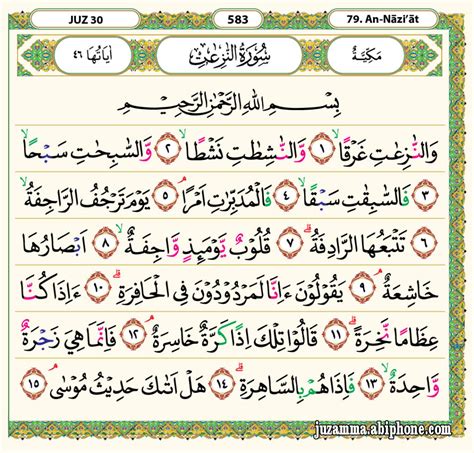 JUZ 30 583 79. An-Nāzi'āt
مَكِيَّةٌ سُورَةُ النّٰزِعٰتِ اٰيَاتُهَا ٤٦
بِسْمِ اللّٰهِ الرَّحْمٰنِ الرَّحِيْمِ
وَالنّٰزِعٰتِ غَرْقًاۙ ١ وَّالنّٰشِطٰتِ نَشْطًاۙ ٢ وَّالسّٰبِحٰتِ سَبْحًاۙ
٣ فَالسّٰبِقٰتِ سَبْقًاۙ ٤ فَالْمُدَبِّرٰتِ اَمْرًاۘ ٥ يَوْمَ تَرْجُفُ الرَّاجِفَةُۙ
٦ تَتْبَعُهَا الرَّادِفَةُۗ ٧ قُلُوْبٌ يَّوْمَئِذٍ وَّاجِفَةٌۙ ٨ اَبْصَارُهَا
خَاشِعَةٌۘ ٩ يَقُوْلُوْنَ ءَاِنَّا لَمَرْدُوْدُوْنَ فِى الْحَافِرَةِۗ ١٠ ءَاِذَا كُنَّا
عِظَامًا نَّخِرَةًۗ ١١ قَالُوْا تِلْكَ اِذًا كَرَّةٌ خَاسِرَةٌۘ ١٢ فَاِنَّمَا هِيَ زَجْرَةٌ
وَّاحِدَةٌۙ ١٣ فَاِذَا هُمْ بِالسَّاهِرَةِۗ ١٤ هَلْ اَتٰىكَ حَدِيْثُ مُوْسٰىۘ ١٥
juzamma.abiphone.com